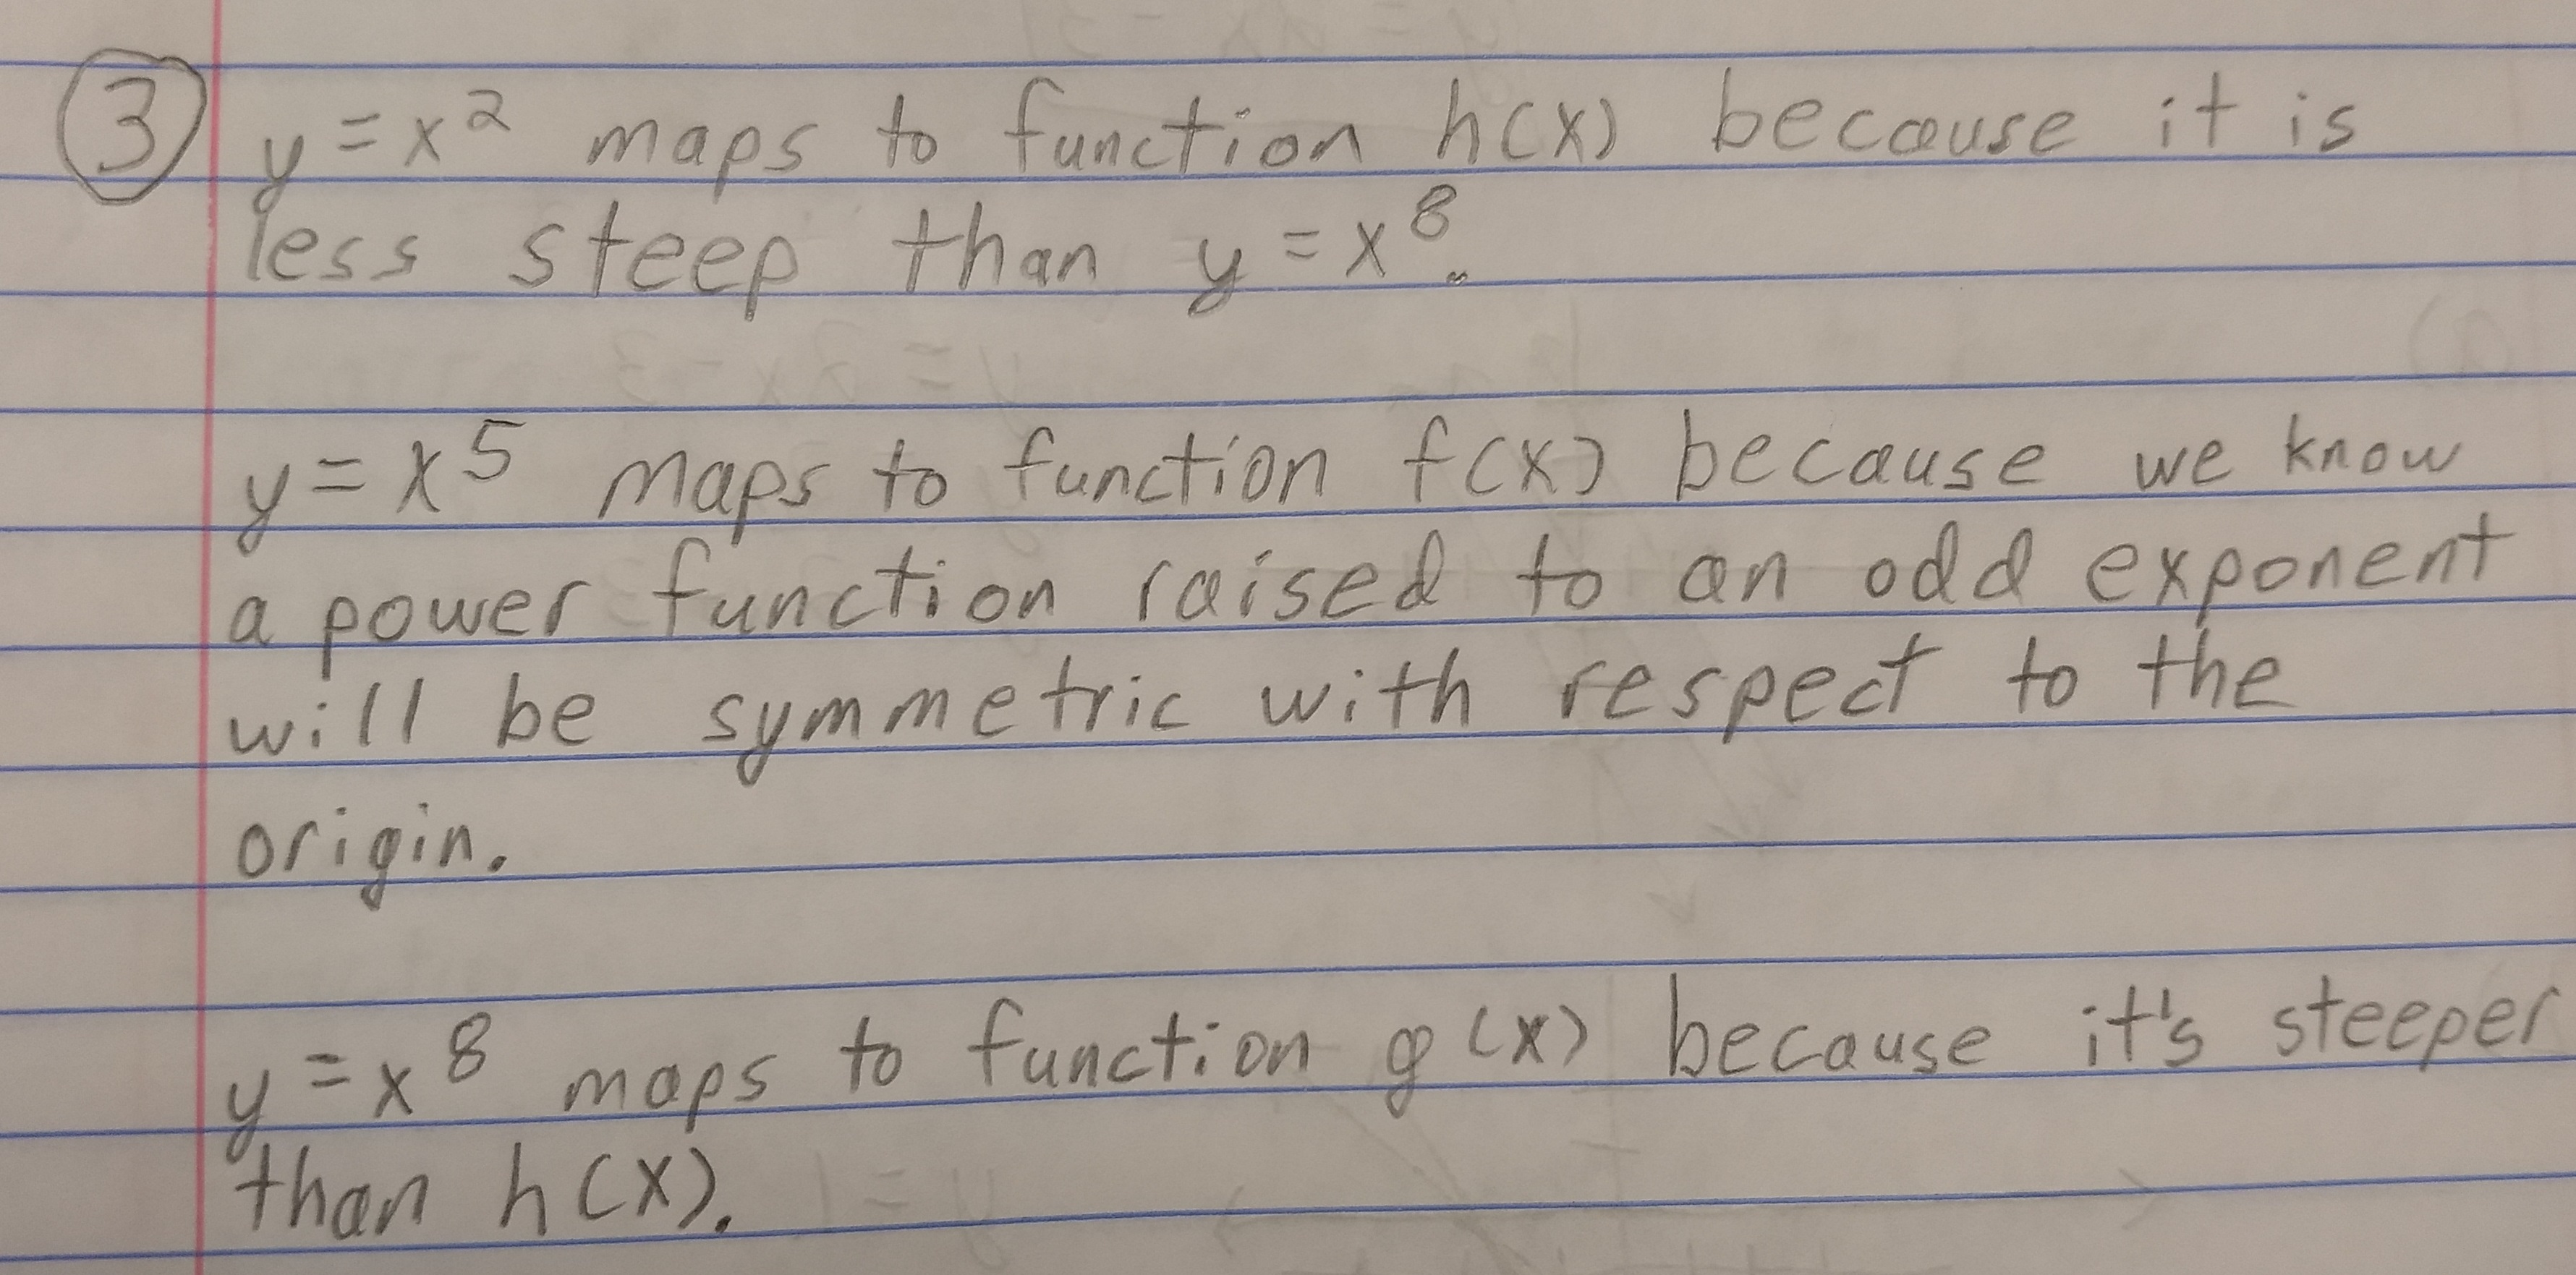 3 y = x² maps to function h(x) because it is
less steep than y = x⁸.
y = x⁵ maps to function f(x) because we know
a power function raised to an odd exponent
will be symmetric with respect to the
origin.
y = x⁸ maps to function g(x) because it's steeper
than h(x).